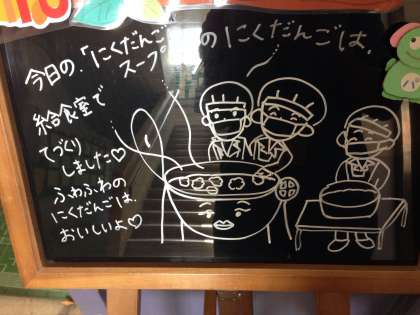 今日の「にくだんご
スープ
のにくだんごは、
給食室で
てづくり
しました♡
ふわふわの
にくだんごは、
おいしいよ♡